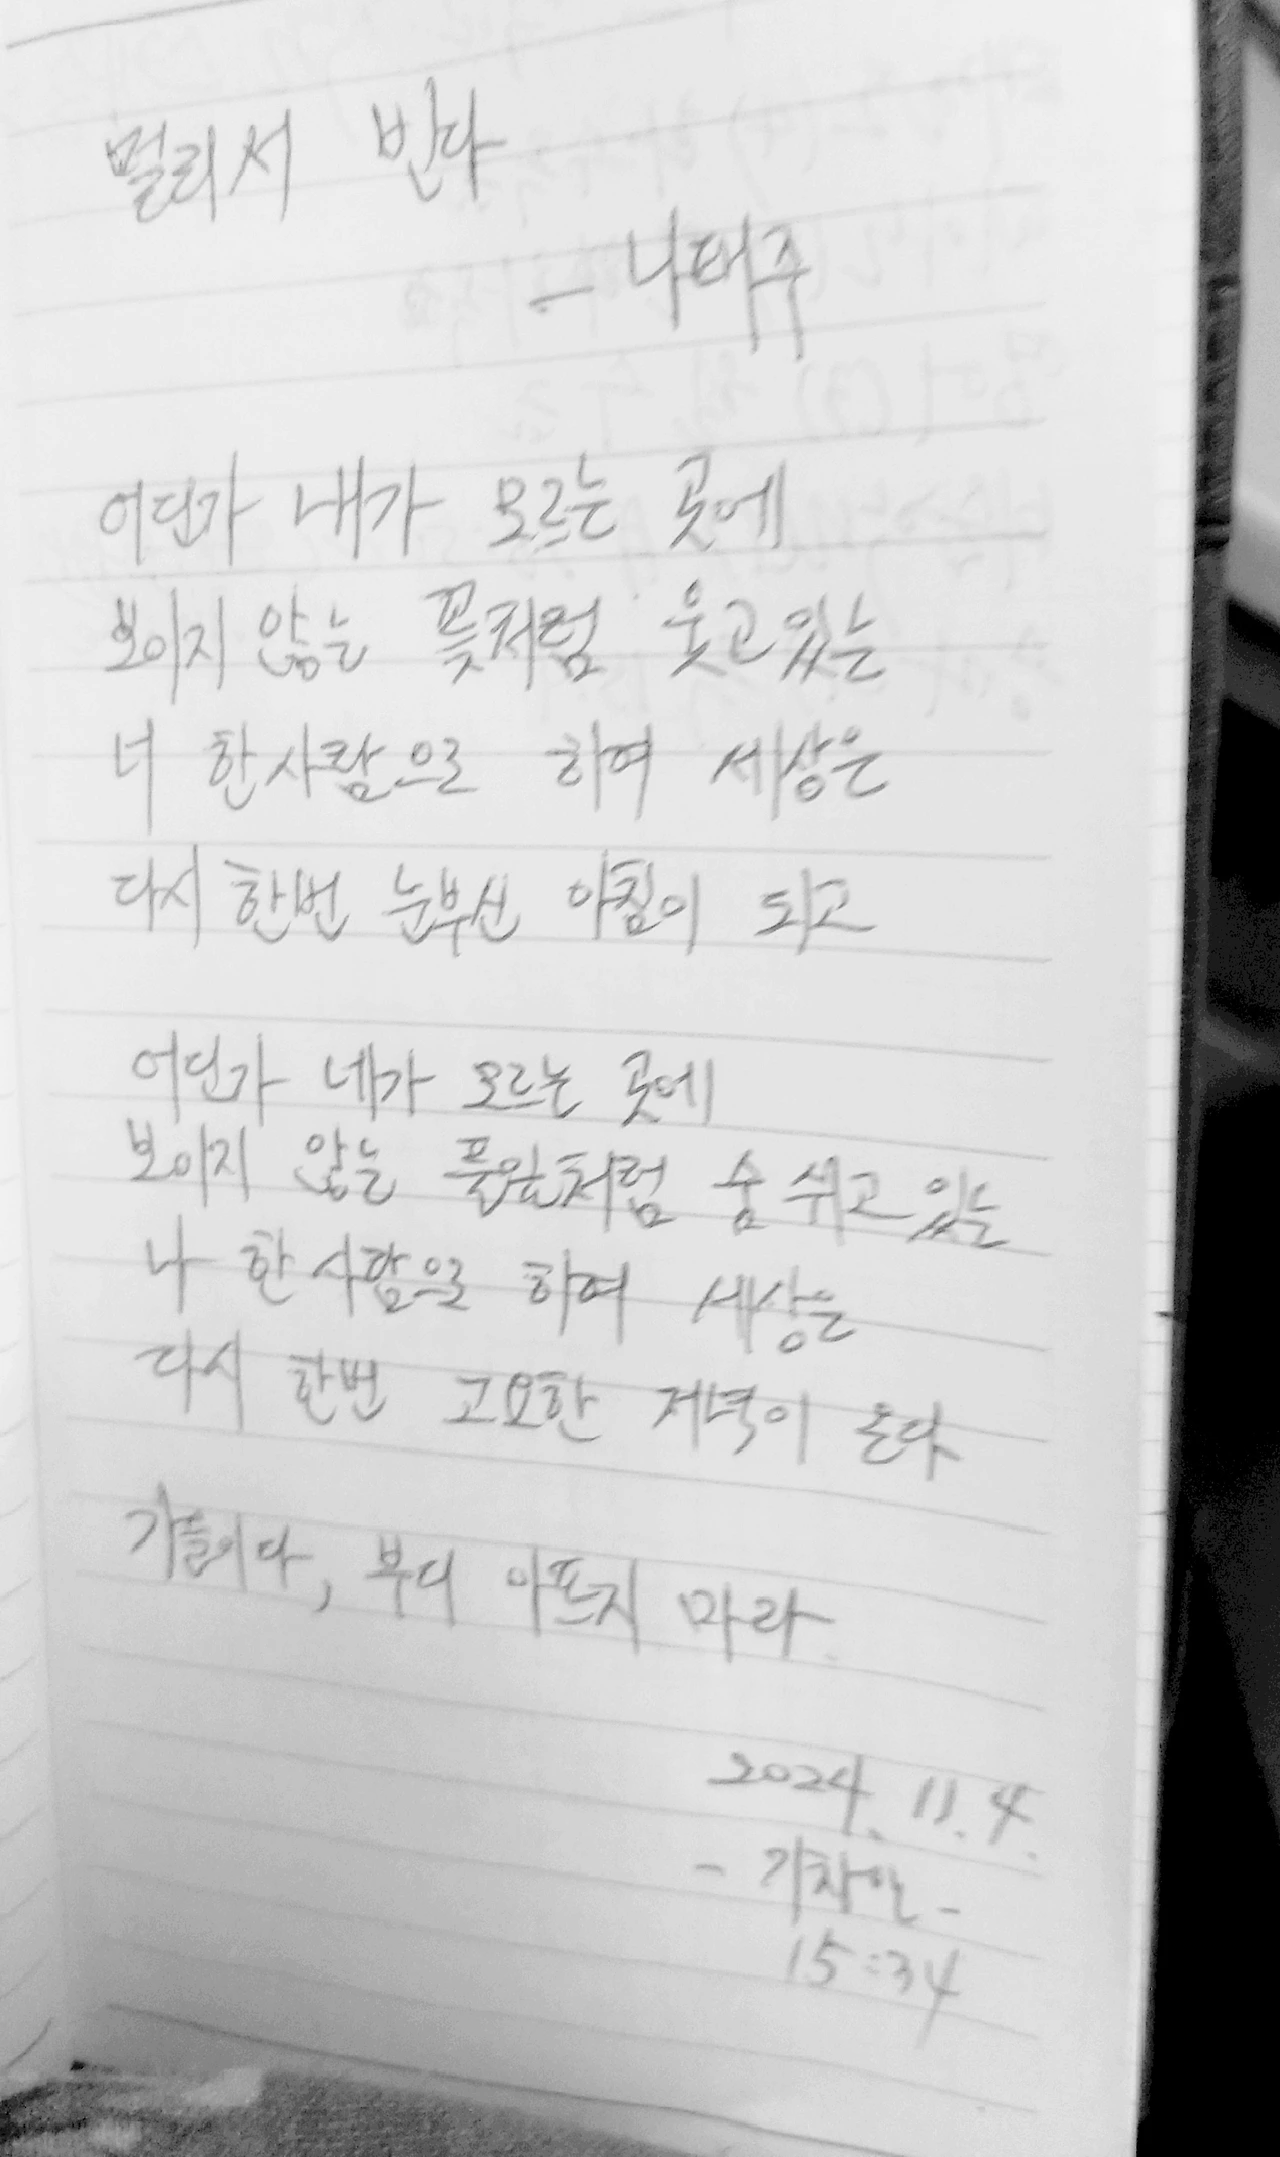 멀리서 빈다
- 나태주
어딘가 내가 모르는 곳에
보이지 않는 꽃처럼 웃고 있는
너 한 사람으로 하여 세상은
다시 한번 눈부신 아침이 되고
어딘가 네가 모르는 곳에
보이지 않는 풀잎처럼 숨 쉬고 있는
나 한 사람으로 하여 세상은
다시 한번 고요한 저녁이 온다
가을이다, 부디 아프지 마라.
2024. 11. 4.
- 기차안 -
15:34